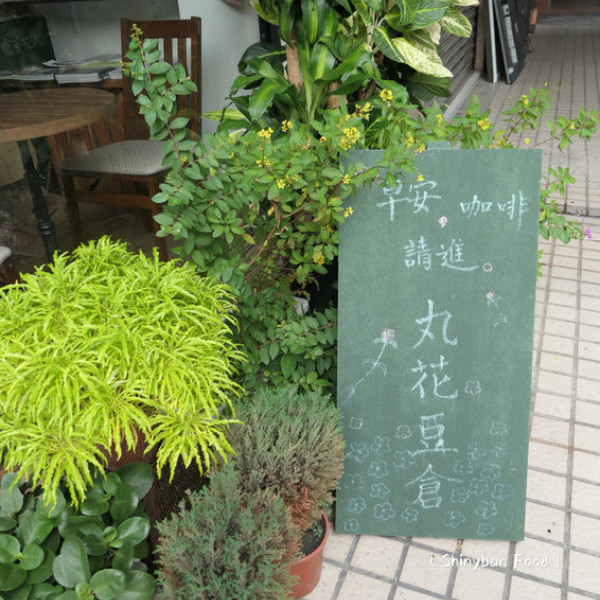 早安 咖啡
請進
丸花豆倉
「 Shinyban Food 」